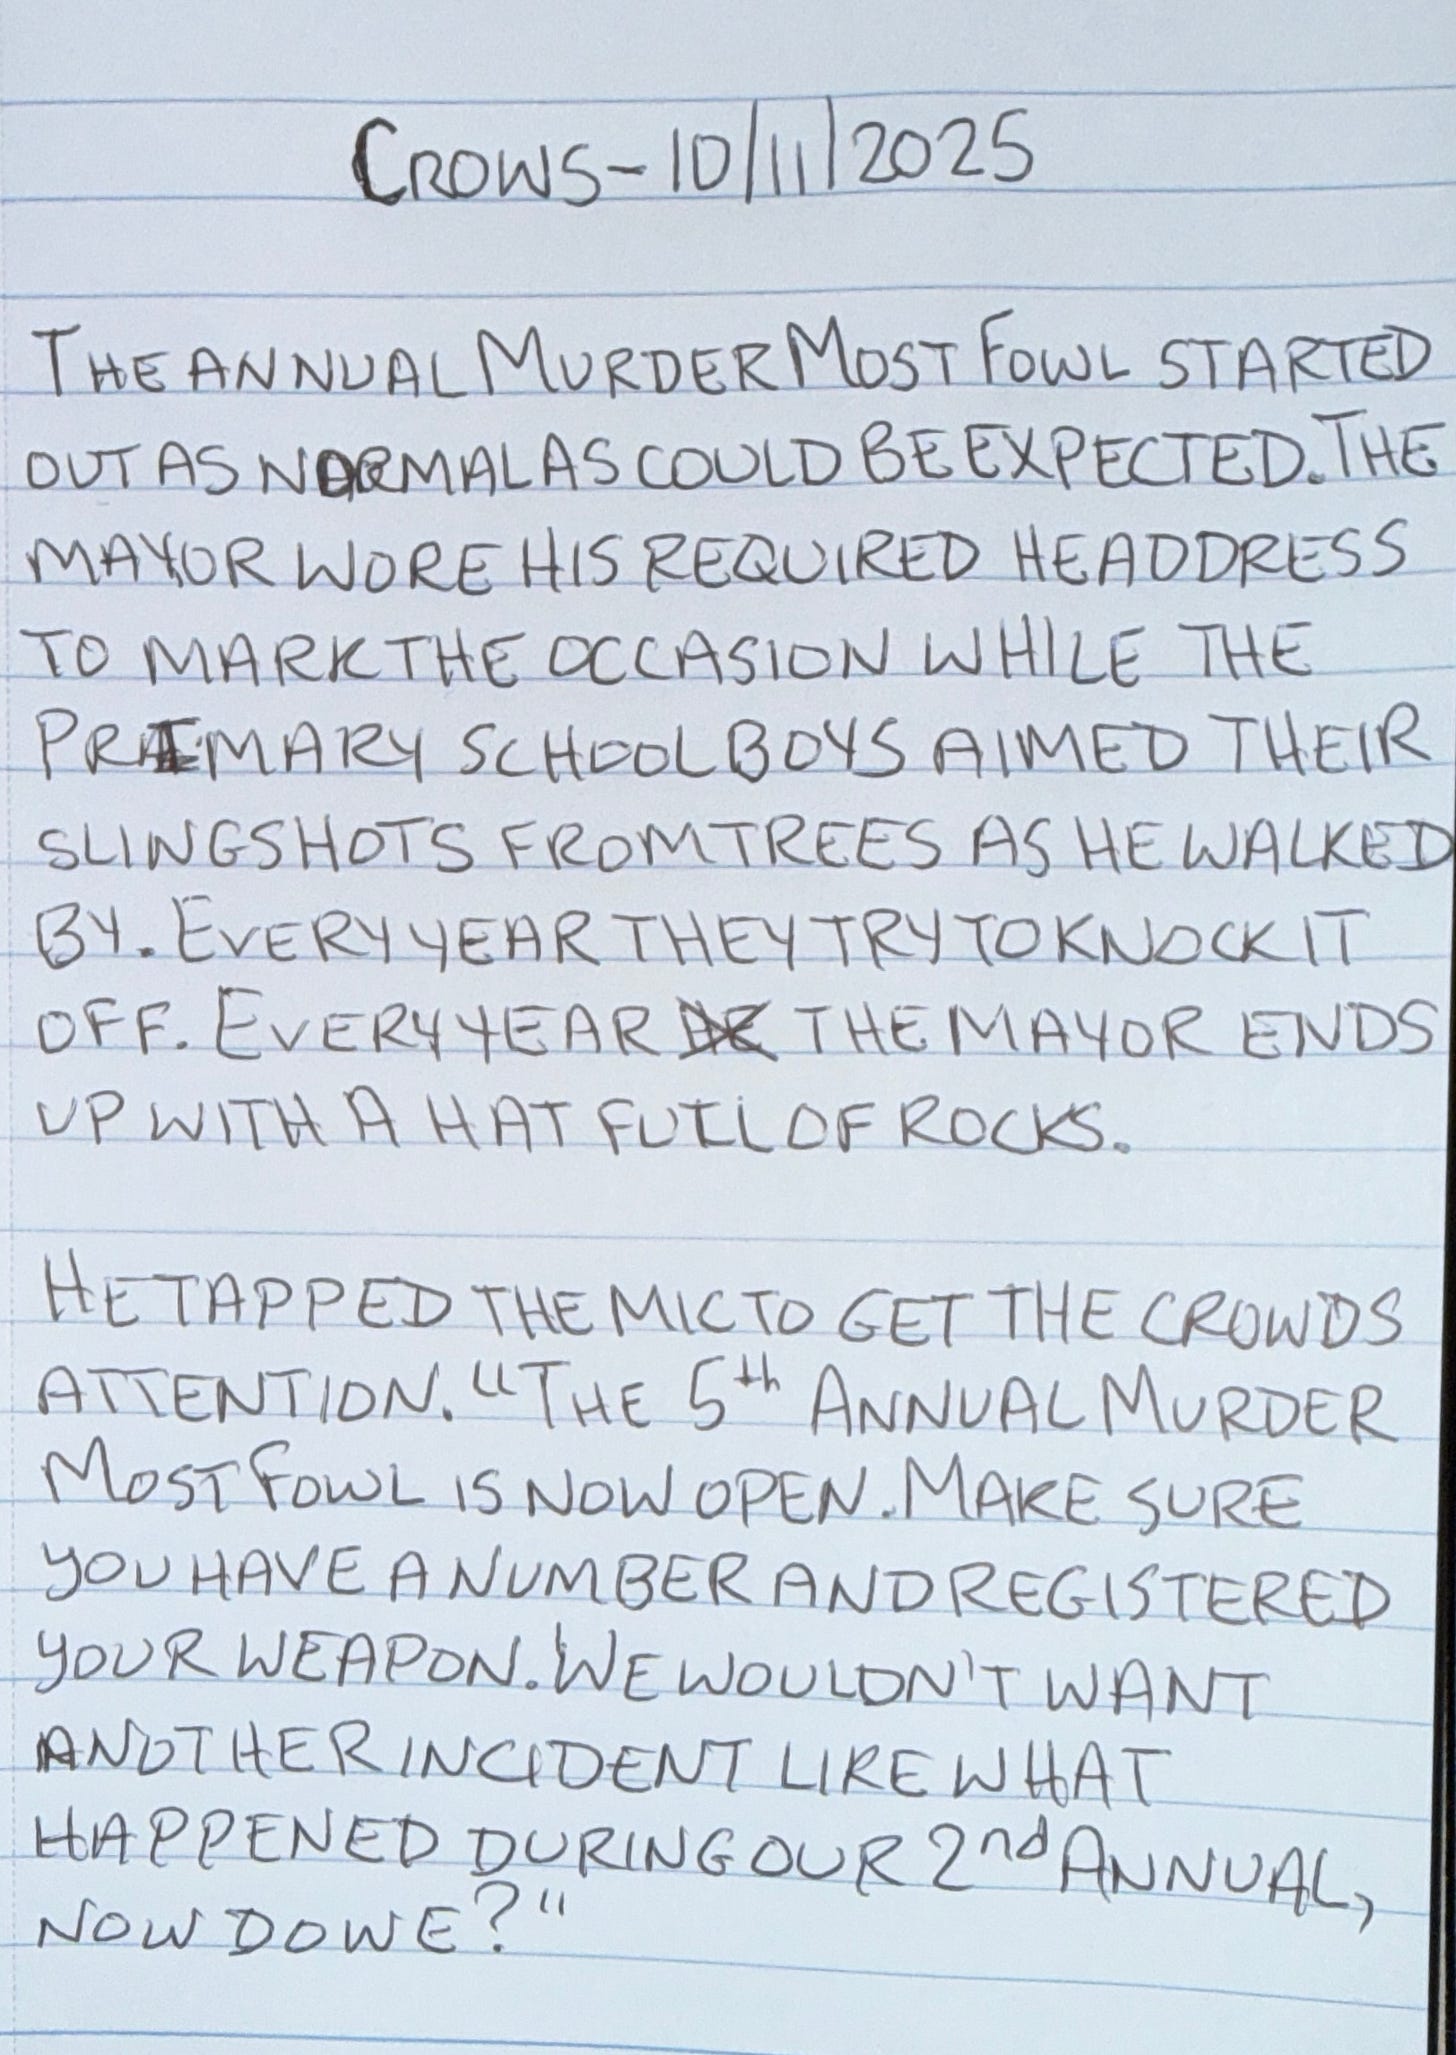 CROWS - 10/11/2025
THE ANNUAL MURDER MOST FOWL STARTED
OUT AS NORMAL AS COULD BE EXPECTED. THE
MAYOR WORE HIS REQUIRED HEADDRESS
TO MARK THE OCCASION WHILE THE
PRIMARY SCHOOL BOYS AIMED THEIR
SLINGSHOTS FROM TREES AS HE WALKED
BY. EVERY YEAR THEY TRY TO KNOCK IT
OFF. EVERY YEAR THE MAYOR ENDS
UP WITH A HAT FULL OF ROCKS.
HE TAPPED THE MIC TO GET THE CROWDS
ATTENTION. "THE 5th ANNUAL MURDER
MOST FOWL IS NOW OPEN. MAKE SURE
YOU HAVE A NUMBER AND REGISTERED
YOUR WEAPON. WE WOULDN'T WANT
ANOTHER INCIDENT LIKE WHAT
HAPPENED DURING OUR 2nd ANNUAL,
NOW DO WE?"